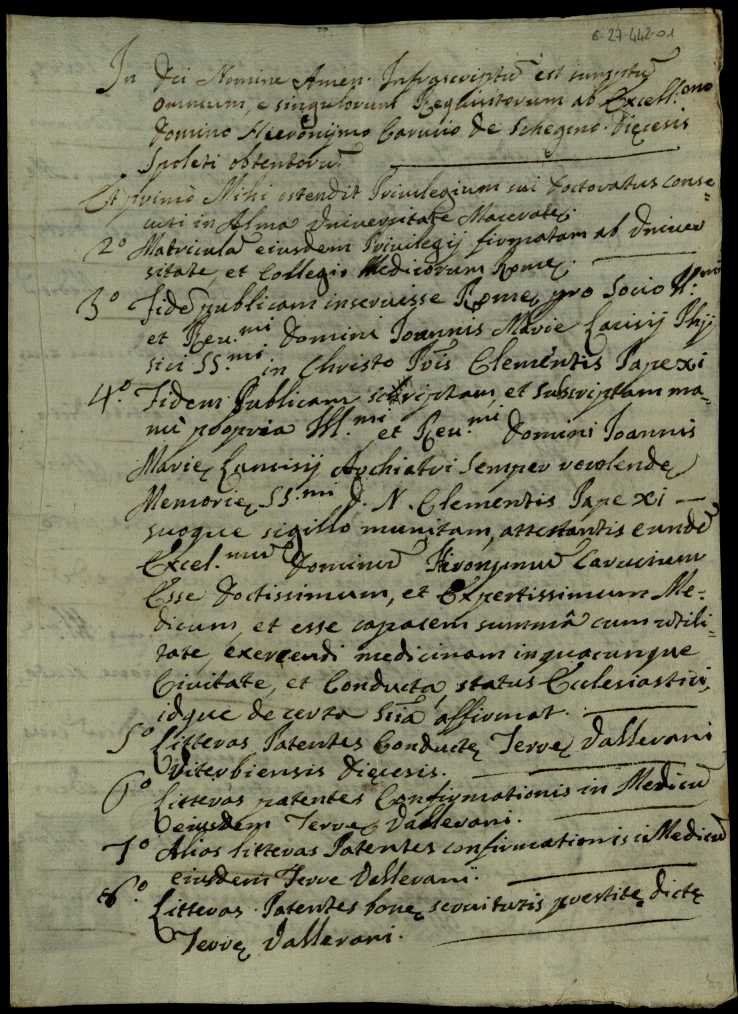 6-27-442-01
In Dei Nomine Amen. Infrascriptũ est sumptũ
omnium, e singulorum Requisitorum ab Excell.mo
Domino Hieronijmo Carucio de Schegino Dięcesis
Spoleti obtentorũ.
Et primò Mihi ostendit Privilegium sui Doctoratus conse=
cuti in Alma Universitate Maceratę.
2º Matriculã eiusdem Privilegij firmatam ab Univer
sitate, et Collegio Medicorum Romę.
3º Fidẽ publicam inservisse Romę pro Socio Ill.mi
et Reu.mi Domini Ioannis Marie Lancisij Phÿ
sici SS.mi in Christo P̃ris Clementis Papę xi
4.º Fidem Publicam scriptam, et subscriptam ma=
nu propria Ill.mi et Reu.mi Domini Ioannis
Marię Lancisij Archiatri semper recolendę
Memorię SS.mi D. N. Clementis Papę xi —
suoque sigillo munitam, attestantis eundẽ
Excel.mum Dominũ Hironymũ Carucium
Esse Doctissimum, et Expertissimum Me=
dicum, et esse capacem summã cum utili=
tate, exercendi medicinam in quacunque
Civitate, et Conducta status Ecclesiastici,
idque de certa sũa affirmat.
5º Litteras Patentes Conductę Terrę Vallerani
Viterbiensis Diecesis.
6º Litteras patentes Confirmationis in Medicũ
eiusdem Terrę Vallerani.
7º Alias litteras Patentes confirmationis ĩ Medicũ
eiusdem Terre Vallerani.
8.º Litteras Patentes bonę servitutis prestitę dictę
Terrę Vallerani.